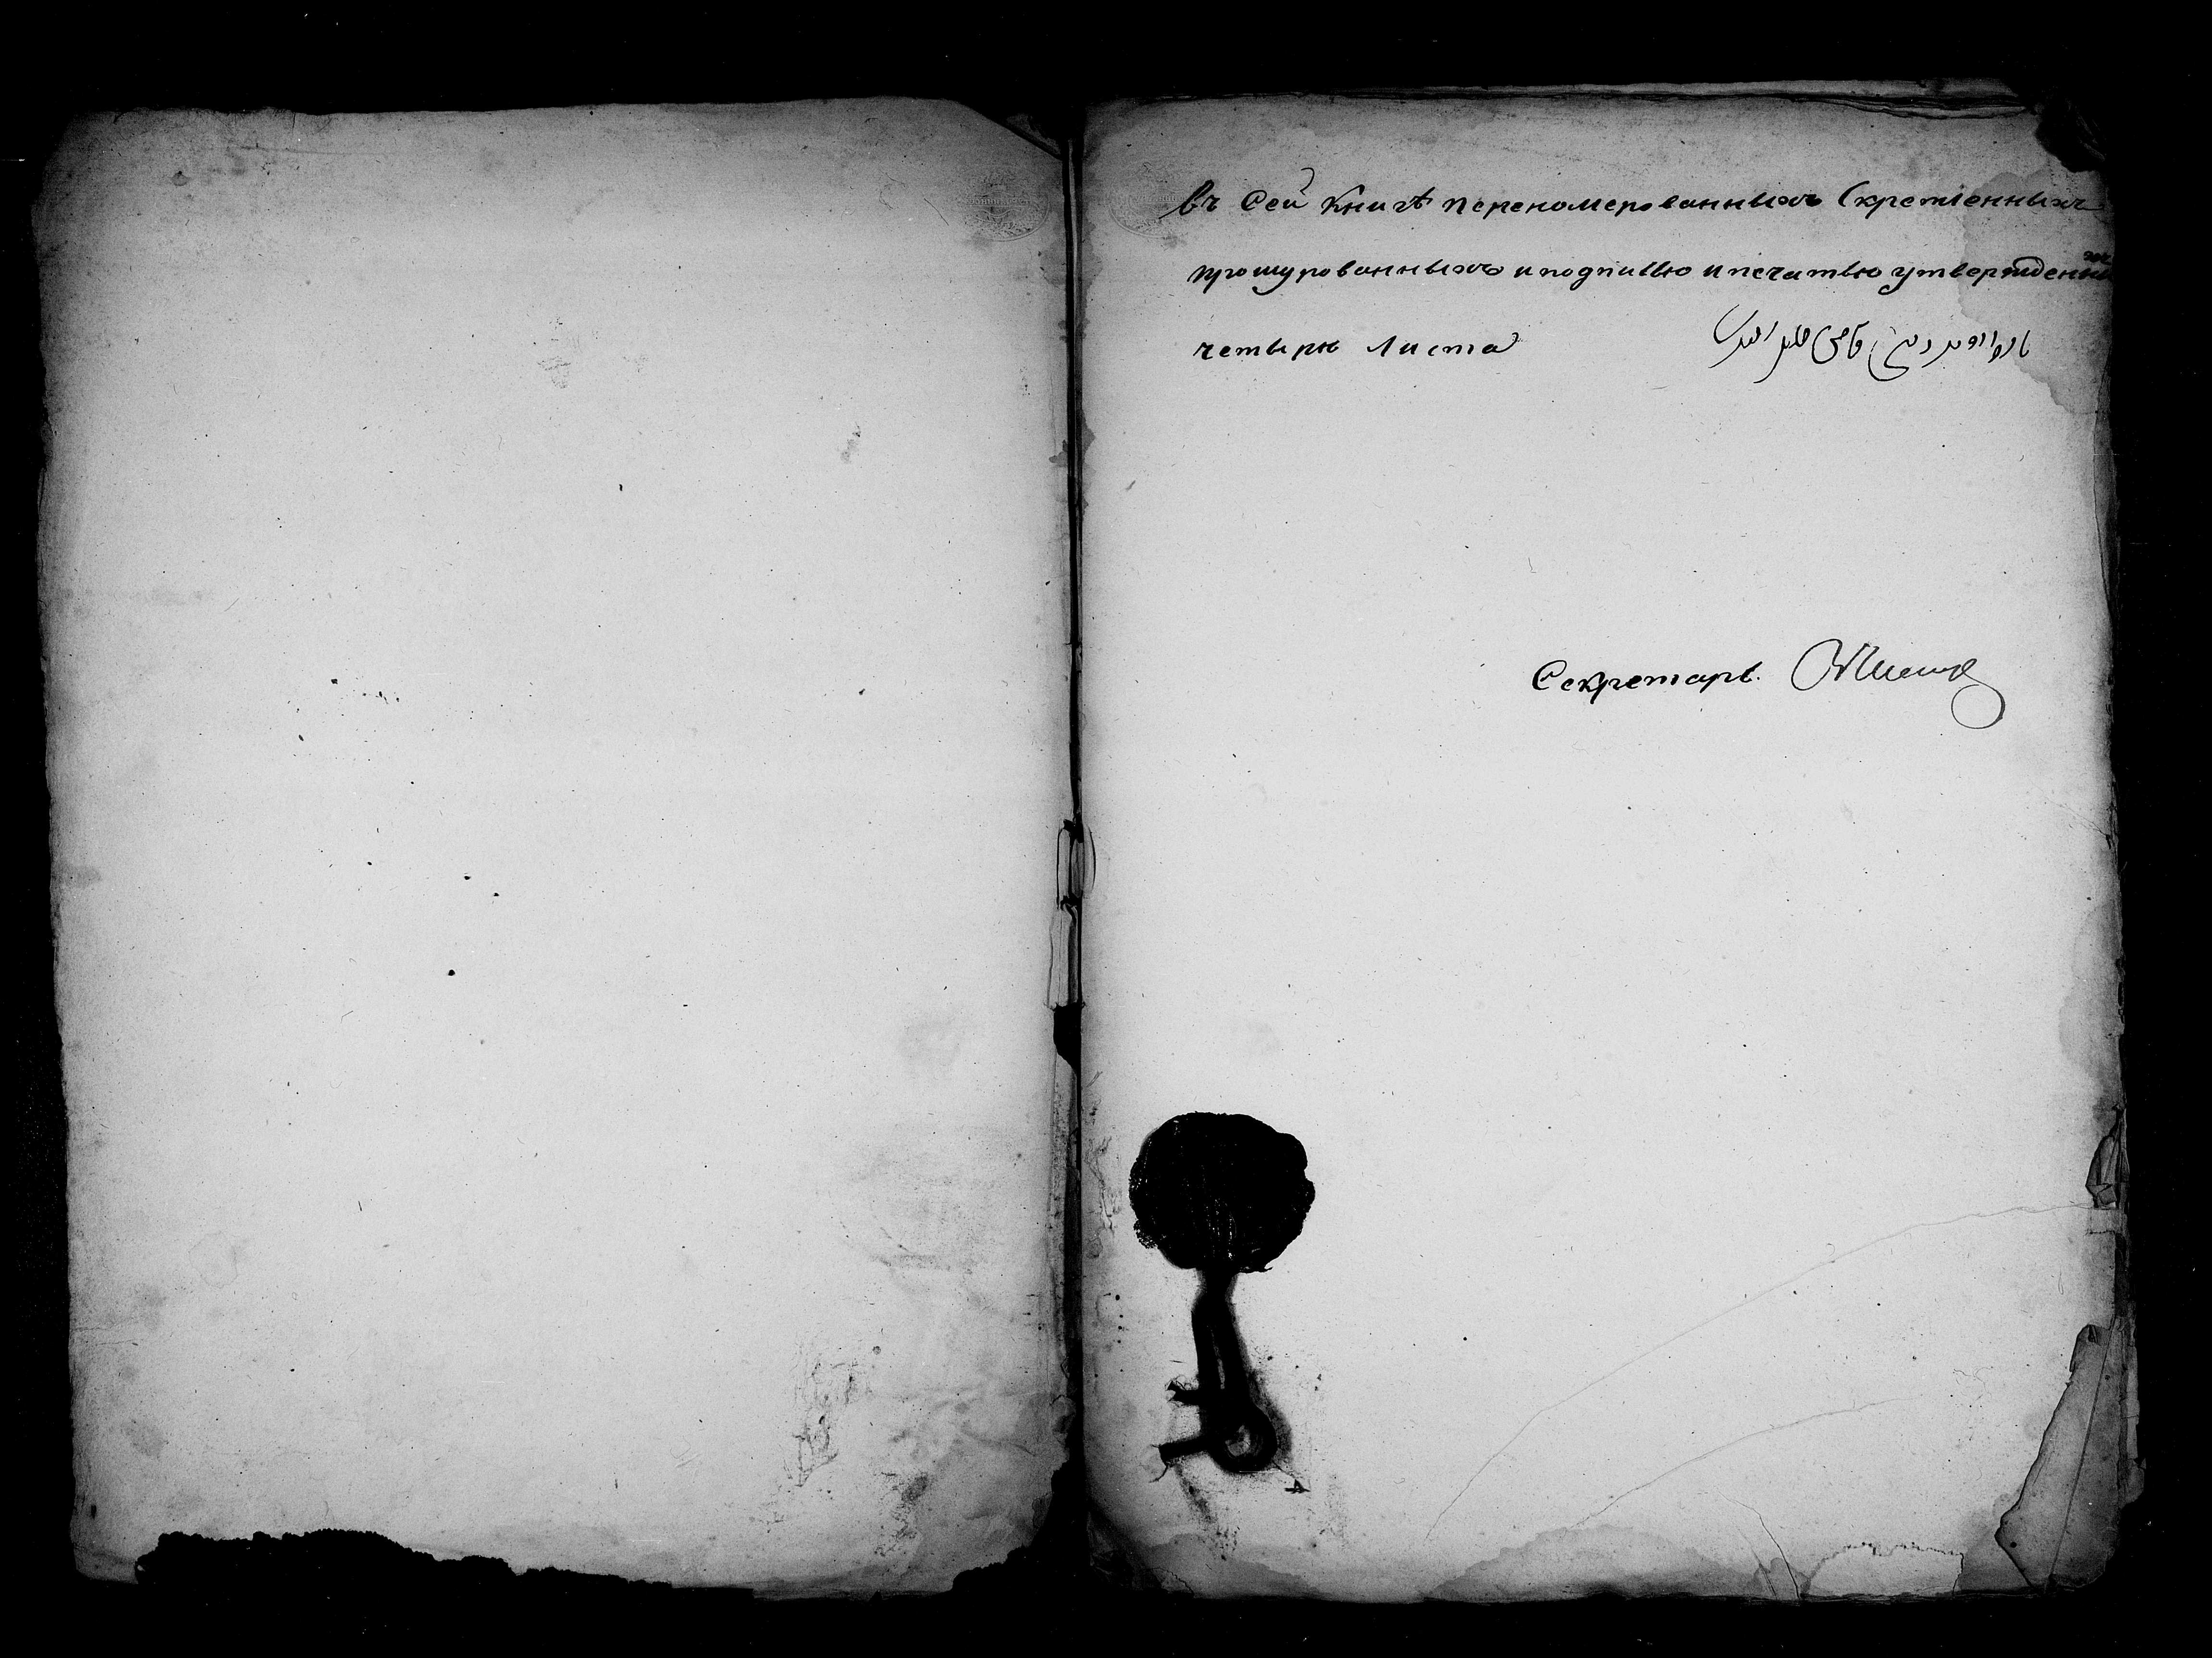 въ Сей Книгѣ переномерованныхъ Скрепленныхъ
прошурованныхъ и подписью и печатью утвержденныхъ
четыри Листа
Секретарь